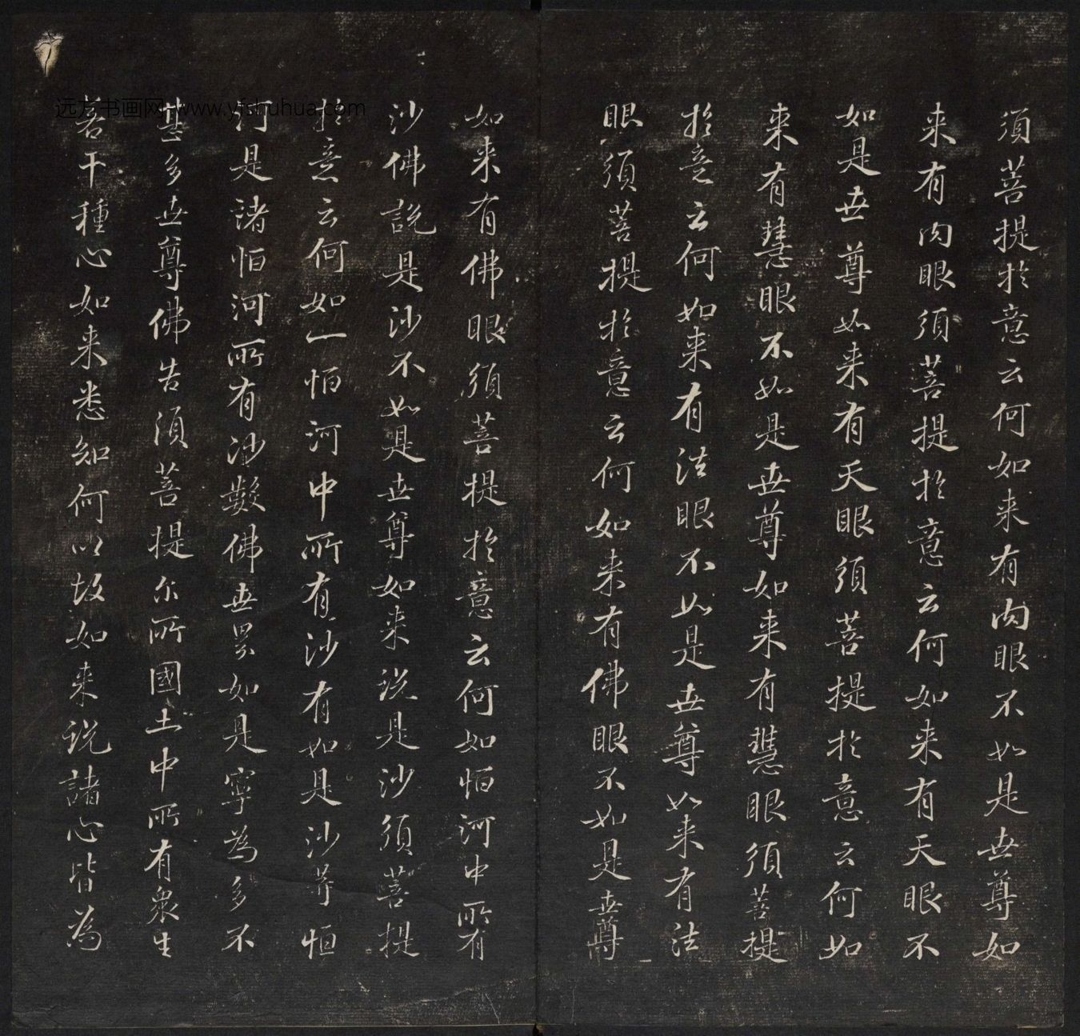 須菩提於意云何如来有肉眼不如是世尊如
来有肉眼須菩提於意云何如来有天眼不
如是世尊如来有天眼須菩提於意云何如
来有慧眼不如是世尊如来有慧眼須菩提
於意云何如来有法眼不如是世尊如来有法
眼須菩提於意云何如来有佛眼不如是世尊
如来有佛眼須菩提於意云何如恒河中所有
沙佛說是沙不如是世尊如来說是沙須菩提
於意云何如一恒河中所有沙有如是沙等恒
河是諸恒河所有沙數佛世界如是寧為多不
甚多世尊佛告須菩提尒所國土中所有衆生
若干種心如来悉知何以故如来說諸心皆為
远方书画网 www.yfshuhua.com